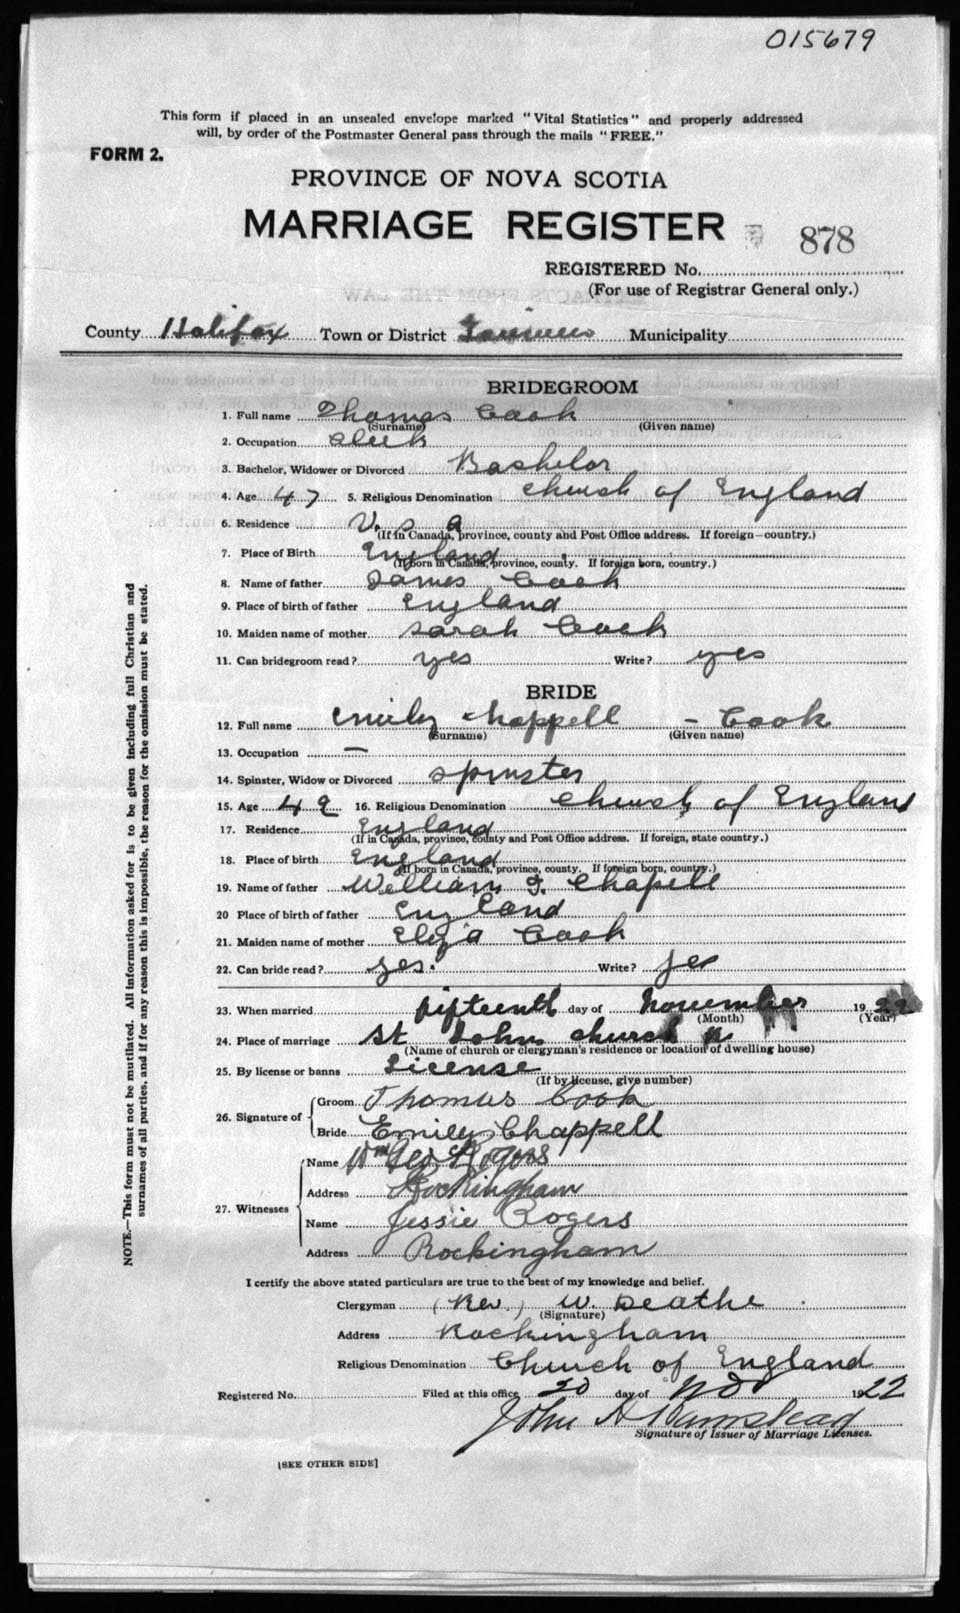 015679
This form if placed in an unsealed envelope marked "Vital Statistics" and properly addressed
will, by order of the Postmaster General pass through the mails "FREE."
FORM 2.
PROVINCE OF NOVA SCOTIA
MARRIAGE REGISTER
878
REGISTERED No.
(For use of Registrar General only.)
County Halifax Town or District Municipality
BRIDEGROOM
1. Full name Thomas Cook
(Surname) (Given name)
2. Occupation Clerk
3. Bachelor, Widower or Divorced Bachelor
4. Age 47 5. Religious Denomination Church of England
6. Residence U. S. A
(If in Canada, province, county and Post Office address. If foreign—country.)
7. Place of Birth England
(If born in Canada, province, county. If foreign born, country.)
8. Name of father James Cook
9. Place of birth of father England
10. Maiden name of mother Sarah Cook
11. Can bridegroom read? yes Write? yes
BRIDE
12. Full name Emily Chappell - Cook
(Surname) (Given name)
13. Occupation —
14. Spinster, Widow or Divorced Spinster
15. Age 49 16. Religious Denomination Church of England
17. Residence England
(If in Canada, province, county and Post Office address. If foreign, state country.)
18. Place of birth England
(If born in Canada, province, county. If foreign born, country.)
19. Name of father William J. Chapell
20 Place of birth of father England
21. Maiden name of mother Eliza Cook
22. Can bride read? yes. Write? yes
23. When married fifteenth day of November 1922
(Month) (Year)
24. Place of marriage St Johns Church
(Name of church or clergyman's residence or location of dwelling house)
25. By license or banns License
(If by license, give number)
26. Signature of Groom Thomas Cook
Bride Emily Chappell
27. Witnesses
Name Wm Geo Rogers
Address Rockingham
Name Jessie Rogers
Address Rockingham
I certify the above stated particulars are true to the best of my knowledge and belief.
Clergyman (Rev.) W. Deathe
(Signature)
Address Rockingham
Religious Denomination Church of England
Registered No. Filed at this office 20 day of Nov 1922
John H
Signature of Issuer of Marriage Licenses.
[SEE OTHER SIDE]
NOTE.—This form must not be mutilated. All information asked for is to be given including full Christian and
surnames of all parties, and if for any reason this is impossible, the reason for the omission must be stated.